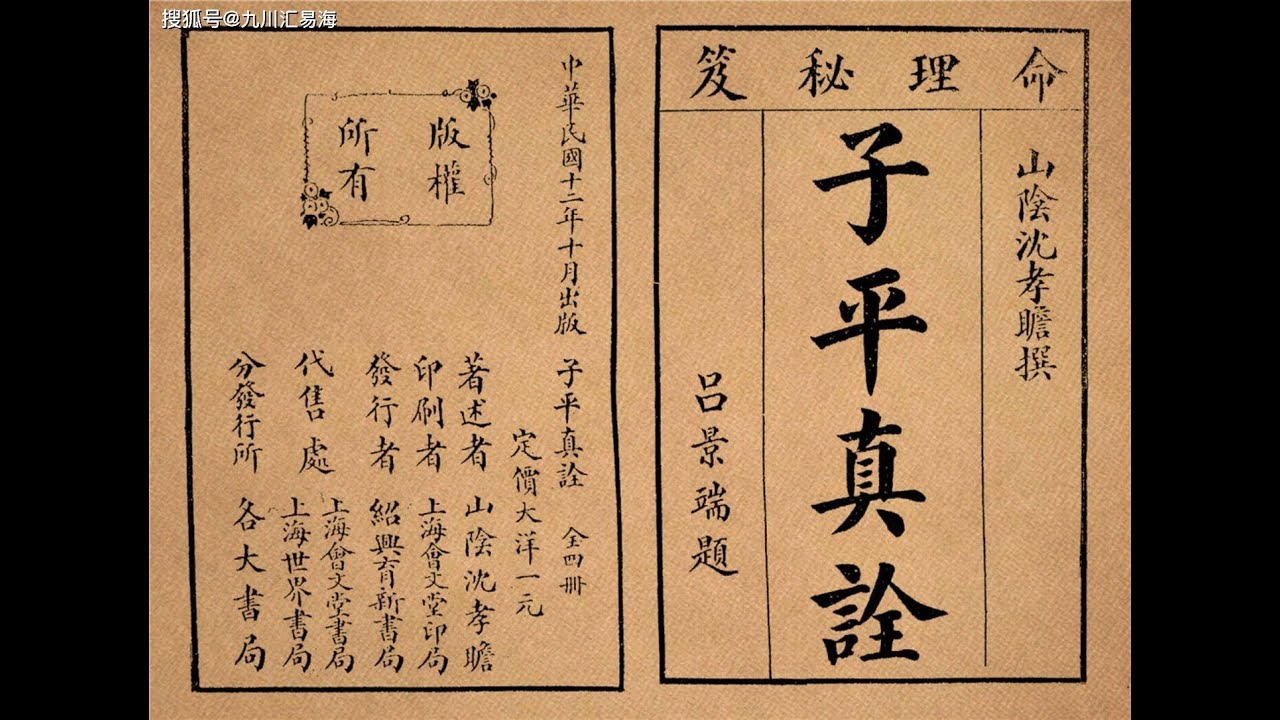 搜狐号@九川汇易海
命理秘笈
山陰沈孝瞻撰
子平真詮
呂景端題
版權
所有
中華民國十二年十月出版
子平真詮 全四冊
定價大洋一元
著述者 山陰沈孝瞻
印刷者 上海會文堂印局
發行者 紹興育新書局
代售處 上海會文堂書局
上海世界書局
分發行所 各大書局